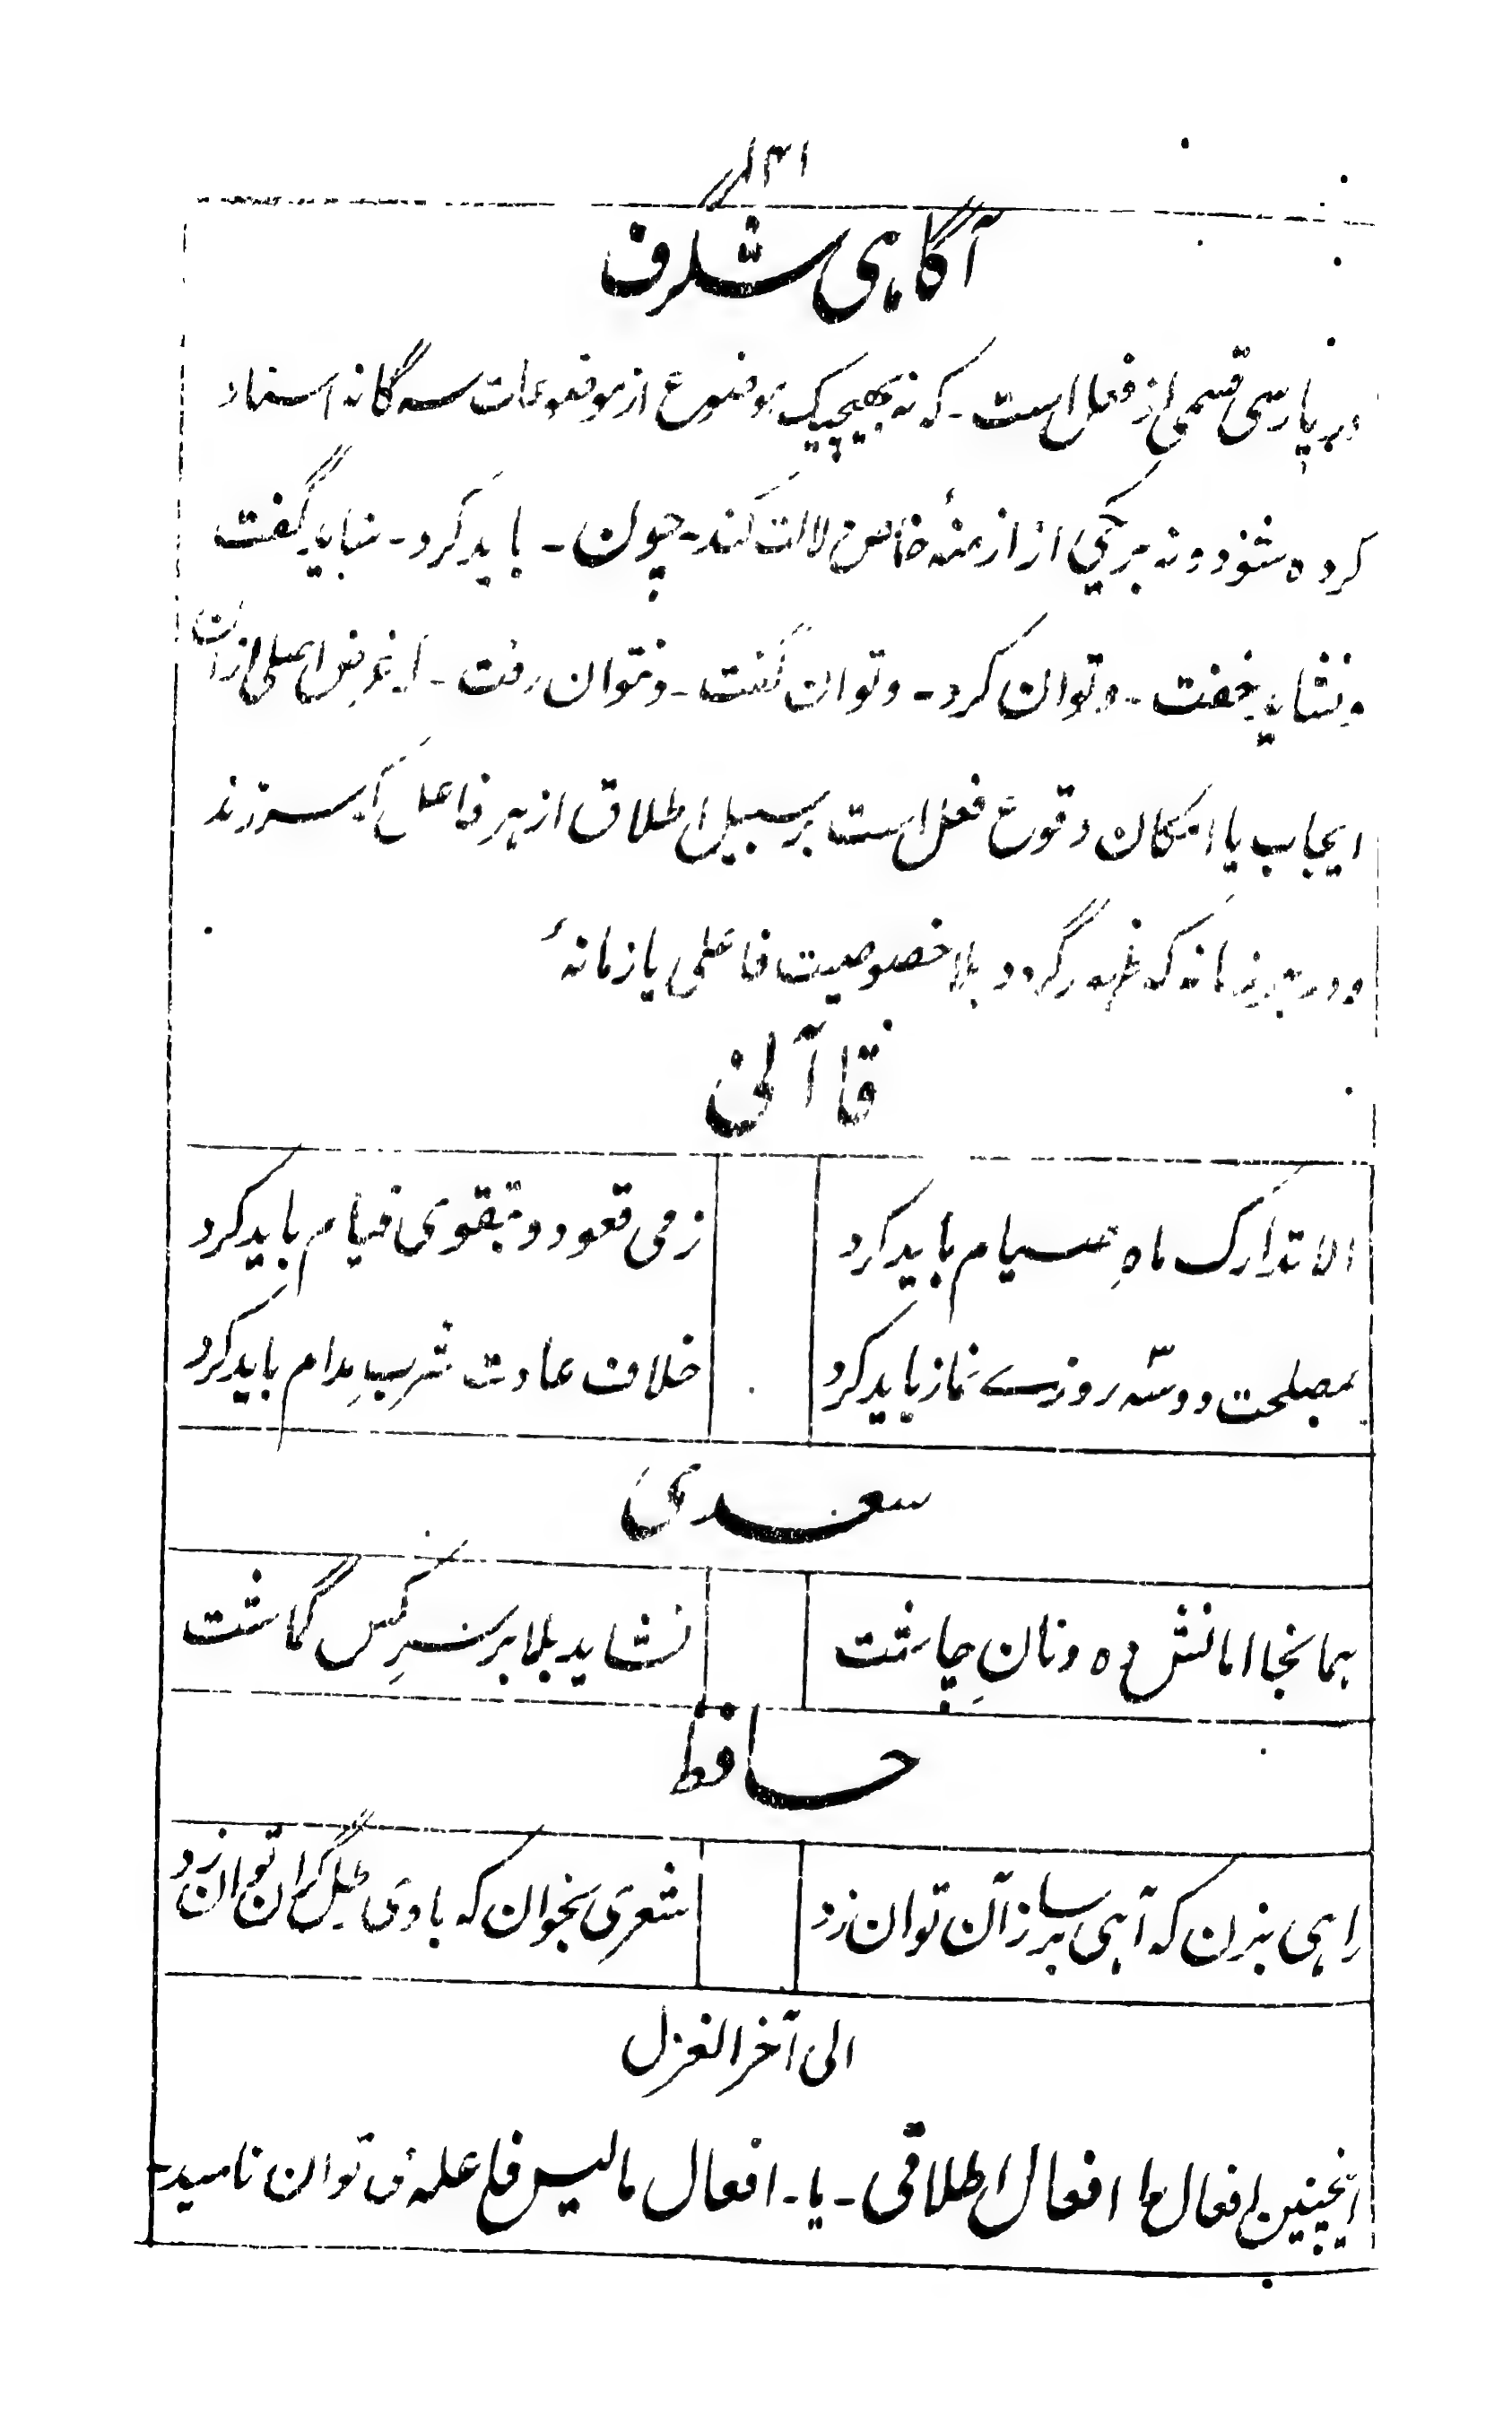 ۱۴۱
آگاہی شگرف
در پارسی قسمی از فعل است - کہ نہ بھیچیک موضوع از موضوعات سہ گانہ اسناد
کردہ شود و نہ بر یکی از ازمنہٴ خاص دلالت کند - چون - باید کرد - نباید گفت
و نشاید خفت - و توان کرد - و توان گفت - و نتوان رفت - غرض اصلی از آن
ایجاب یا امکان وقوع فعل است بر سبیل اطلاق از ہر فاعل کہ سر زند
و در ہر زمانہ کہ ظہور گردد بلا خصوصیت فاعلی یا زمانہٴ
قاآنی
الا تدارک ماہِ صیام باید کرد
ز می قعود و بتقوی قیام باید کرد
بمصلحت دو سّہ روزے نماز باید کرد
خلاف عادت شربِ مدام باید کرد
سعدی
ہمانجا امانش دہ و نانِ چاشت
نشاید بلا بر سرِ کس گماشت
حافظ
راہی بزن کہ آہی بر ساز آن توان زد
شعری بخوان کہ با وی رطل گران توان زد
الی آخر الغزل
اینچنین افعال را افعال اطلاقی - یا - افعال ما لیس فاعلہ توان نامید -